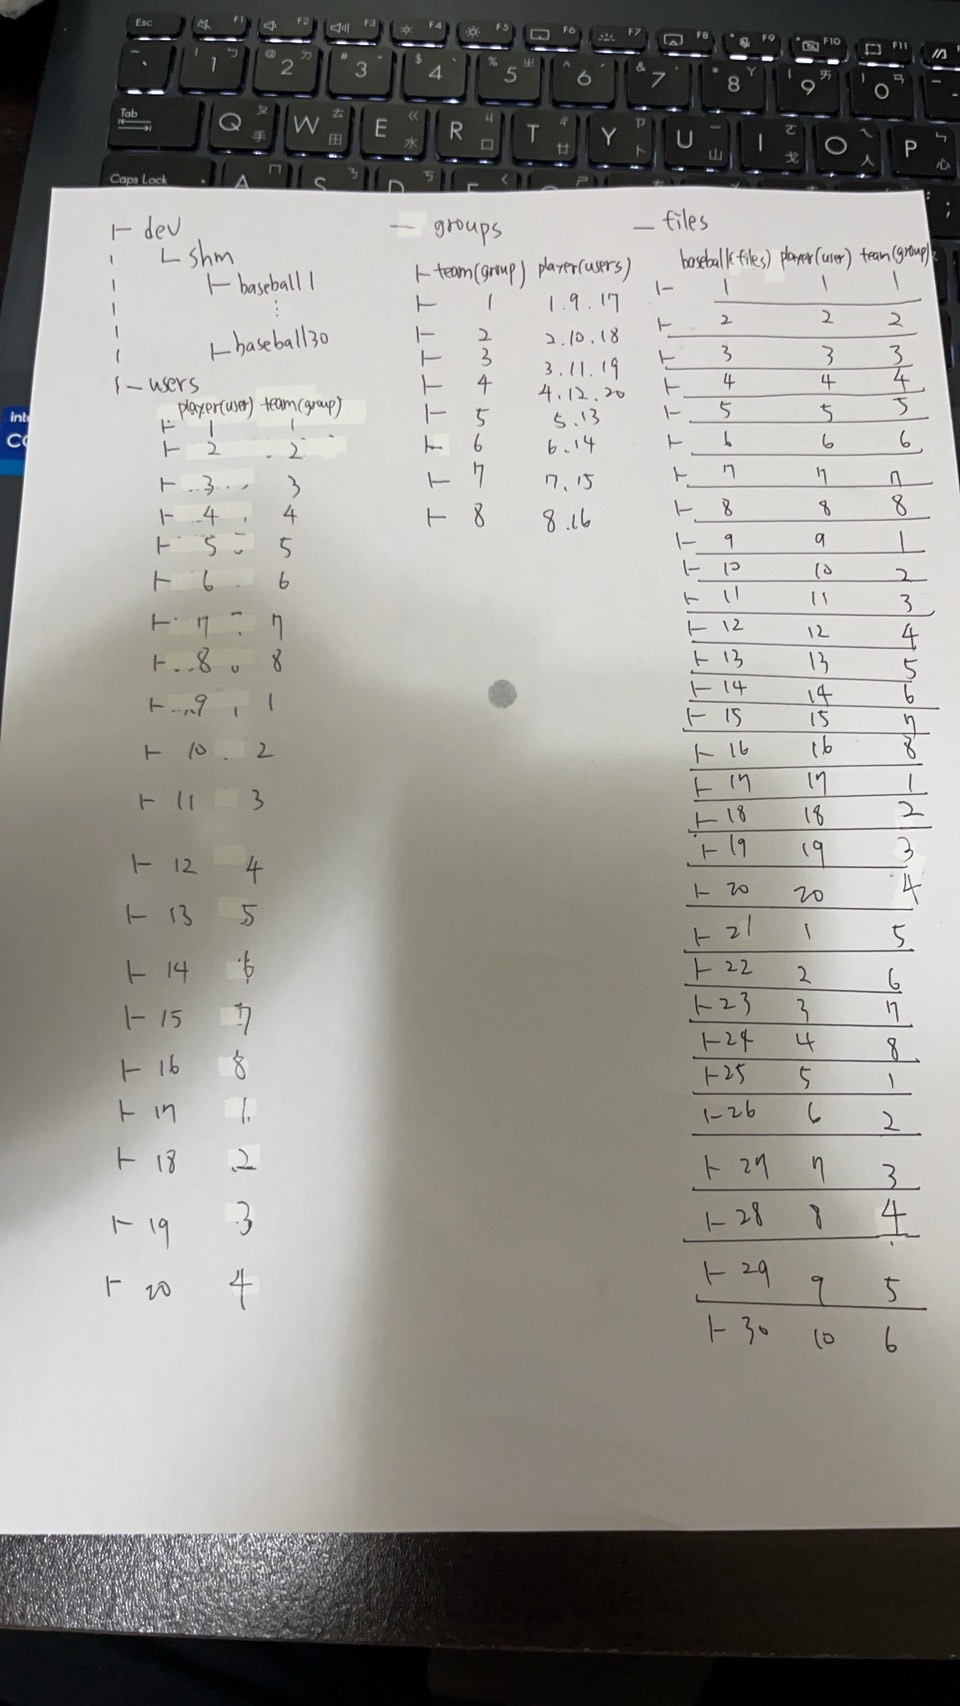 Esc F1 F2 F3 F4 F5 F6 F7 F8 F9 F10 F11
1 ㄅ @ 2 ㄉ # 3 ˇ $ 4 ˋ % 5 ㄓ ^ 6 ˊ & 7 ˙ * 8 ㄚ ( 9 ㄞ ) 0 ㄢ
Tab Q ㄆ 手 W ㄊ 田 E ㄍ 水 R ㄐ 口 T ㄔ 廿 Y ㄗ 卜 U ㄧ 山 I ㄛ 戈 O ㄟ 人 P ㄣ 心
Caps Lock A ㄇ S ㄋ D ㄎ F ㄑ
├ dev
└ shm
├ baseball1
⋮
├ baseball30
├ users
player(user) team(group)
├ 1 1
├ 2 2
├ 3 3
├ 4 4
├ 5 5
├ 6 6
├ 7 7
├ 8 8
├ 9 1
├ 10 2
├ 11 3
├ 12 4
├ 13 5
├ 14 6
├ 15 7
├ 16 8
├ 17 1
├ 18 2
├ 19 3
├ 20 4
— groups
├ team(group) player(users)
├ 1 1.9.17
├ 2 2.10.18
├ 3 3.11.19
├ 4 4.12.20
├ 5 5.13
├ 6 6.14
├ 7 7.15
├ 8 8.16
— files
baseball(files) player(user) team(group)
├ 1 1 1
├ 2 2 2
├ 3 3 3
├ 4 4 4
├ 5 5 5
├ 6 6 6
├ 7 7 7
├ 8 8 8
├ 9 9 1
├ 10 10 2
├ 11 11 3
├ 12 12 4
├ 13 13 5
├ 14 14 6
├ 15 15 7
├ 16 16 8
├ 17 17 1
├ 18 18 2
├ 19 19 3
├ 20 20 4
├ 21 1 5
├ 22 2 6
├ 23 3 7
├ 24 4 8
├ 25 5 1
├ 26 6 2
├ 27 7 3
├ 28 8 4
├ 29 9 5
├ 30 10 6